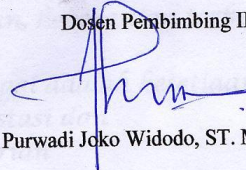 Dosen Pembimbing II
Purwadi Joko Widodo, ST. M